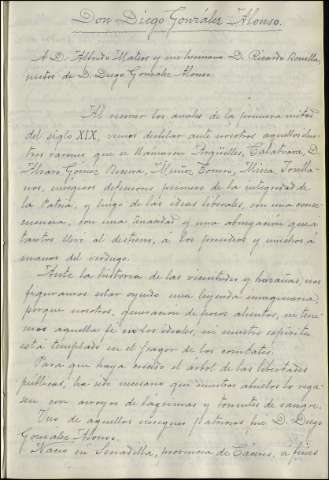 Don Diego González Alonso.
A D. Alfredo Mateos y su hermano D. Ricardo Bonilla,
nietos de D. Diego González Alonso.
Al recorrer los anales de la primera mitad
del siglo XIX, vemos desfilar ante nosotros aquellos ilus-
tres varones que se llamaron Argüelles, Calatrava, D.
Alvaro Gómez Becerra, Muñoz Torrero, Torella-
nos, enérgicos defensores primero de la integridad de
la Patria, y luego de las ideas liberales, con una cons-
, con una y una abnegación que a
tantos llevó al destierro, á los presidios y muchos á
manos del verdugo.
Ante la historia de las vicisitudes y hazañas, nos
figuramos estar oyendo una leyenda imaginaria,
porque nosotros, generación de pocos alientos, ni tene-
mos aquella fe en los ideales, ni nuestro espíritu
está templado en el fragor de los combates.
Para que haya crecido el árbol de las libertades
públicas, ha sido necesario que nuestros abuelos lo rega-
sen con arroyos de lágrimas y torrentes de sangre.
Uno de aquellos insignes patricios, fué D. Diego
González Alonso.
Nació en Serradilla, provincia de Cáceres, á fines